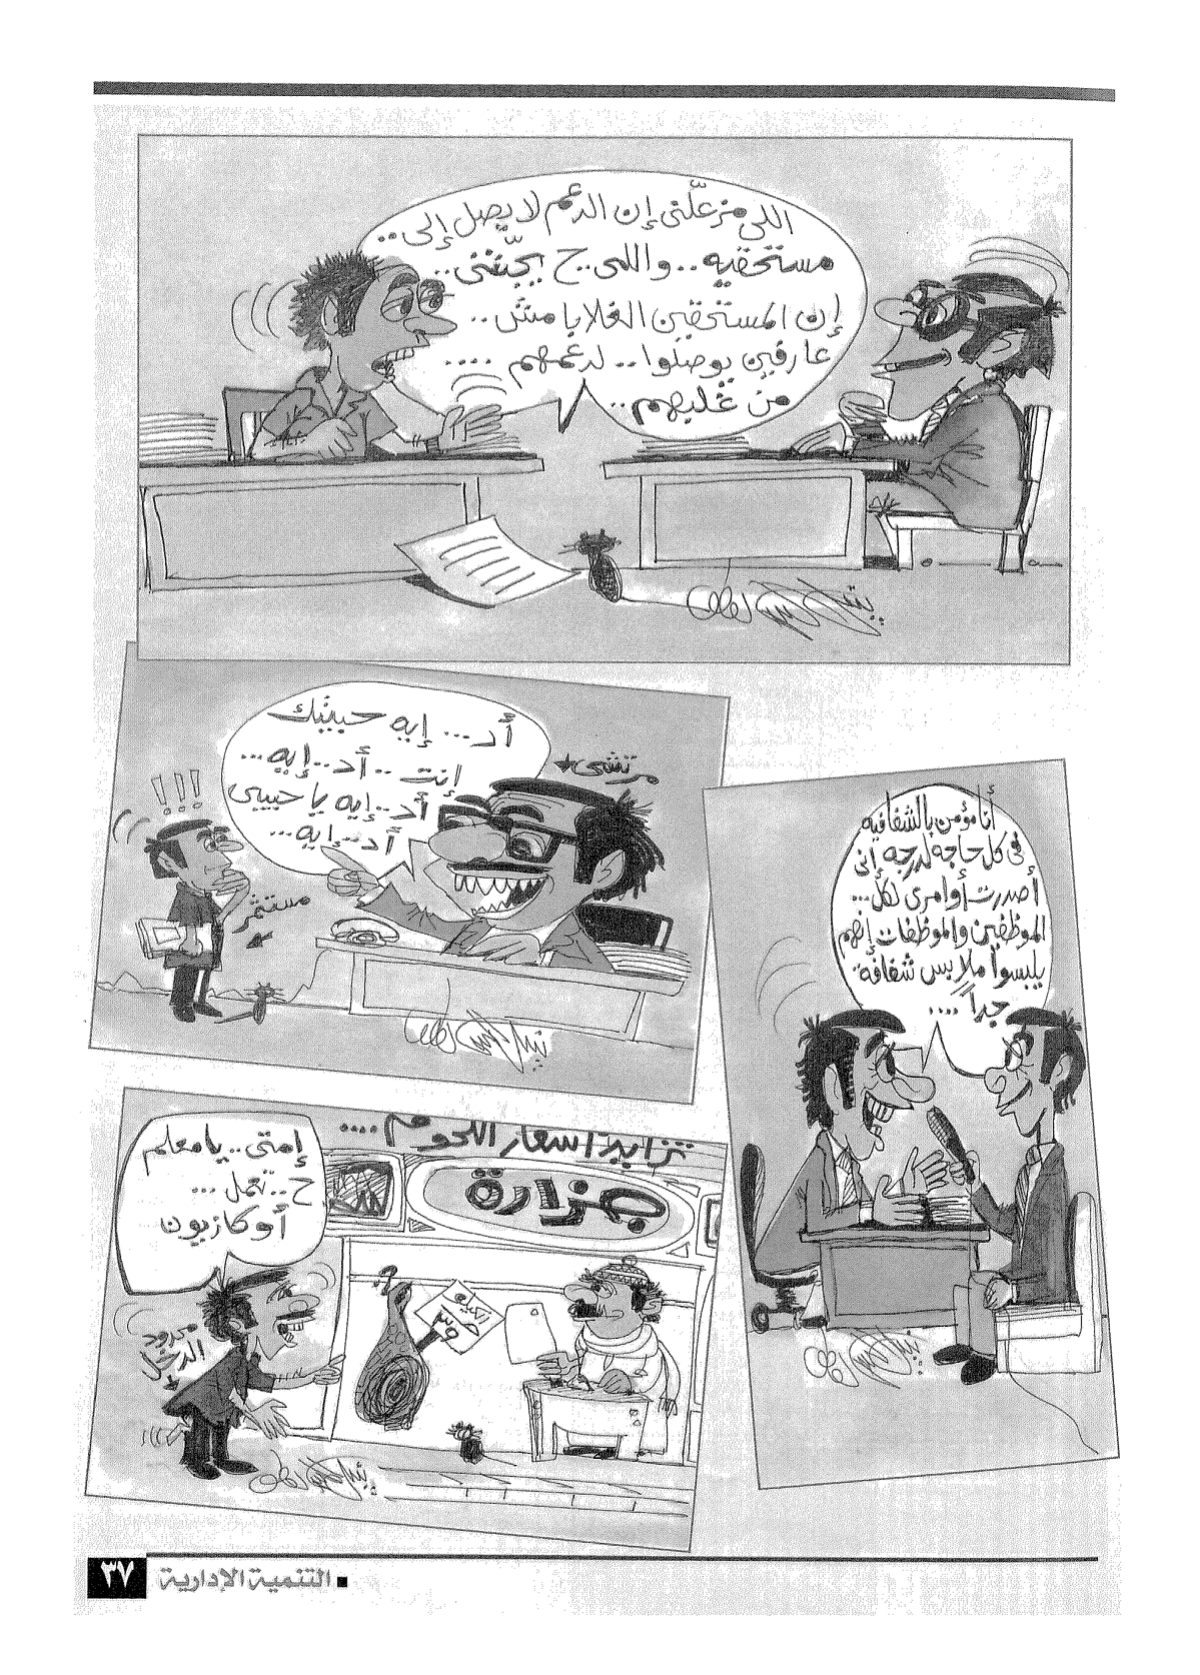 اللى مزعلّنى إن الدعم لا يصل إلى..
مستحقيه.. واللى.. ح يجنّنى..
إن المستحقين الغلابا مش..
عارفين يوصلوا.. لدعمهم ....
من غُلبهم..
أد... إيه حبيتك
إنت.. أد.. إيه...
أد.. إيه يا حبيبى
أد.. إيه...
مرتشى
!!!
مستثمر
أنا مؤمن بالشفافيه
فى كل حاجه لدرجه إنى
أصدرت أوامرى لكل...
الموظفين والموظفات إنهم
يلبسوا ملابس شفافة
جداً....
تزايد أسعار اللحوم....
جزارة
إمتى.. يا معلم
ح.. تعمل...
أوكازيون
الكيلو
محدود
الدخل
التنمية الإدارية
٣٧